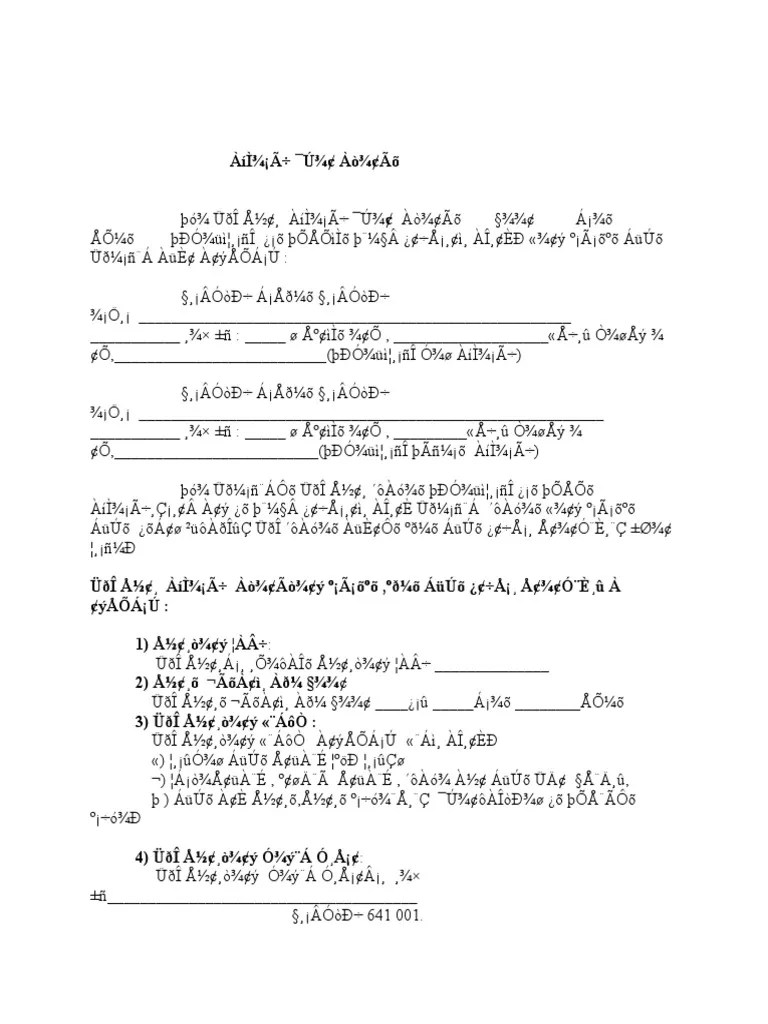 ÀíÌ¾¡Ã÷ ¯Ú¾¢ Àò¾¢Ãõ
þó¾ ÜðÎ Å½¢¸ ÀíÌ¾¡Ã÷ ¯Ú¾¢ Àò¾¢Ãõ §¾¾¢ Á¡¾õ
ÅÕ¼õ þÐÓ¾üì¦¸¡ñÎ ¿¡õ þÕÅÕìÌõ þ¨¼§Â ¿¢÷Å¡¸¢ì¸ ÀÎ¸¢ÈÐ «¾¢ý º¡Ã¡õºõ ÁüÚõ
Üð¼¡ñ¨Á ÀüÈ¢ À¢ýÅÕÁ¡Ú :
§¸¡ÂÓòÐ÷ Á¡Åð¼õ §¸¡ÂÓòÐ÷
¾¡Ö¸¡ ______________________________________________________
___________ ¸¾× ±ñ : _____ ø Åº¢ìÌõ ¾¢Õ , ___________________«Å÷¸û Ò¾øÅý ¾
¢Õ,__________________________(þÐÓ¾üì¦¸¡ñÎ Ó¾ø ÀíÌ¾¡Ã÷)
§¸¡ÂÓòÐ÷ Á¡Åð¼õ §¸¡ÂÓòÐ÷
¾¡Ö¸¡ __________________________________________________________
___________ ¸¾× ±ñ : _____ ø Åº¢ìÌõ ¾¢Õ , _________«Å÷¸û Ò¾øÅý ¾
¢Õ,_________________________(þÐÓ¾üì¦¸¡ñÎ þÃñ¼¡õ ÀíÌ¾¡Ã÷)
þó¾ Üð¼¡ñ¨ÁÔõ ÜðÎ Å½¢¸ ´ôÀó¾õ þÐÓ¾üì¦¸¡ñÎ ¿¡õ þÕÅÕõ
ÀíÌ¾¡Ã÷¸Ç¡¸¢Â À¢ý ¿õ þ¨¼§Â ¿¢÷Å¡¸¢ì¸ ÀÎ¸¢È Üð¼¡ñ¨Á ´ôÀó¾õ «¾¢ý º¡Ã¡õºõ
ÁüÚõ ¿õÁ¢ø ²üôÀðÎûÇ ÜðÎ ´ôÀó¾õ ÁüÈ¢Ôõ ºð¼õ ÁüÚõ ¿¢÷Å¡¸ Å¢¾¢Ó¨È¸¨Ç ±Ø¾¢
¦¸¡ñ¼Ð
ÜðÎ Å½¢¸ ÀíÌ¾¡Ã÷ Àò¾¢Ãò¾¢ý º¡Ã¡õºõ ,ºð¼õ ÁüÚõ ¿¢÷Å¡¸ Å¢¾¢Ó¨È¸û À
¢ýÅÕÁ¡Ú :
1) Å½¢¸ò¾¢ý ¦ÀÂ÷:
ÜðÎ Å½¢¸Á¡¸ ¸Õ¾ôÀÎõ Å½¢¸ò¾¢ý ¦ÀÂ÷ ______________
2) Å½¢¸õ ¬ÃõÀ¢ì¸ Àð¼ §¾¾¢
ÜðÎ Å½¢¸õ ¬ÃõÀ¢ì¸ Àð¼ §¾¾¢ ____¿¡û _____Á¡¾õ ________ÅÕ¼õ
3) ÜðÎ Å½¢¸ò¾¢ý «¨ÁôÒ :
ÜðÎ Å½¢¸ò¾¢ý «¨ÁôÒ À¢ýÅÕÁ¡Ú «¨Áì¸ ÀÎ¸¢ÈÐ
«) ¦¸¡ûÓ¾ø ÁüÚõ Å¢üÀ¨É ¦ºöÐ ¦¸¡ûÇø
¬) ¦Á¡ò¾Å¢üÀ¨É , º¢øÄ¨Ã Å¢üÀ¨É , ´ôÀó¾ À½¢ ÁüÚõ ÜÄ¢ §Å¨Ä¸û,
þ ) ÁüÚõ À¢È Å½¢¸õ,Å½¢¸õ º¡÷ó¾¨Å¸¨Ç ¯Ú¾¢ôÀÎòÐ¾ø ¿õ þÕÅ¨ÃÔõ
º¡÷ó¾Ð
4) ÜðÎ Å½¢¸ò¾¢ý Ó¾ý¨Á Ó¸Åâ¢:
ÜðÎ Å½¢¸ò¾¢ý Ó¾ý¨Á Ó¸Å¡¢Â¡¸ ¸¾×
±ñ______________________________________
§¸¡ÂÓòÐ÷ 641 001.